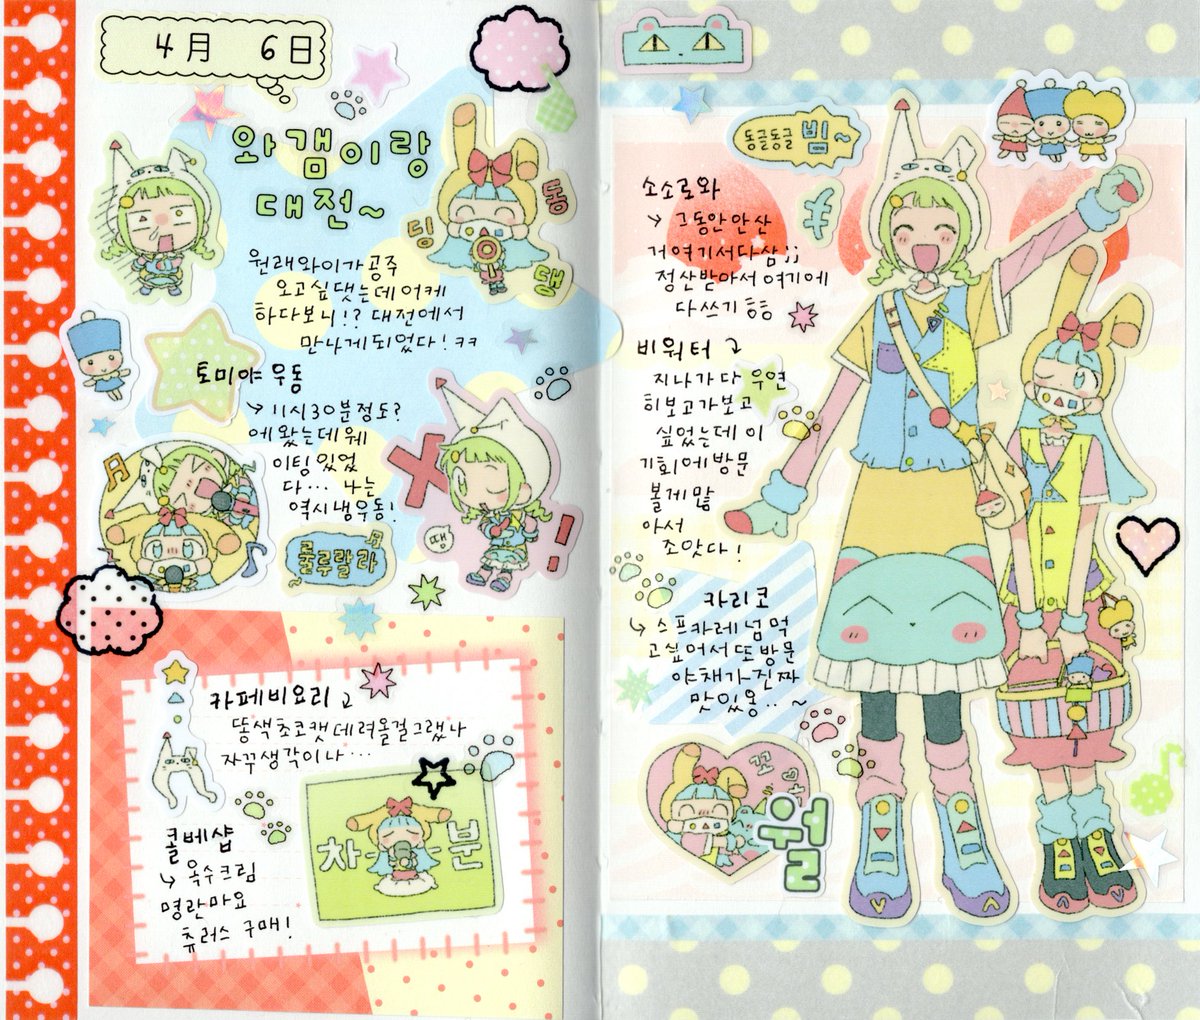 4月 6日
와갬이랑
대전~
딩
동
댕
원래와이가공주
오고싶댓는데어케
하다보니!? 대전에서
만나게되었다!ㅋㅋ
토미야 우동
↳ 11시30분정도?
에왔는데웨
이팅있었
다... 나는
역시냉우동!
땡
룰루랄라
카페비요리
똥색초코캣데려올걸그랬나
자꾸생각이나...
콜베샵
↳ 옥수크림
명란마요
츄러스 구매!
차분
동글동글 빔~
소소로와
↳ 그동안안산
거여기서다삼;;
정산받아서여기에
다쓰기 흠흠
비워터
지나가다 우연
히보고가보고
싶었는데이
기회에방문
볼게많
아서
조앗다!
카리코
↳ 스프카레넘먹
고싶어서또방문
야채가진짜
맛있옹..~
꼬
옥
월